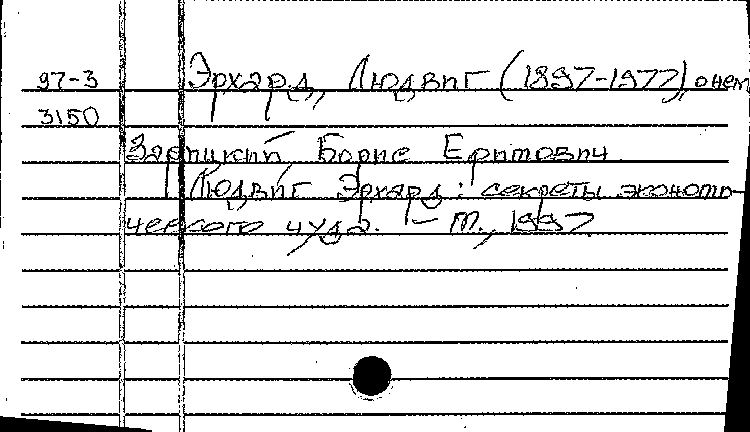 97-3 Эрхард, Людвиг (1897-1977), о нем
3150
Зарицкий, Борис Ефимович
Людвиг Эрхард: секреты экономи-
ческого чуда. - М., 1997.